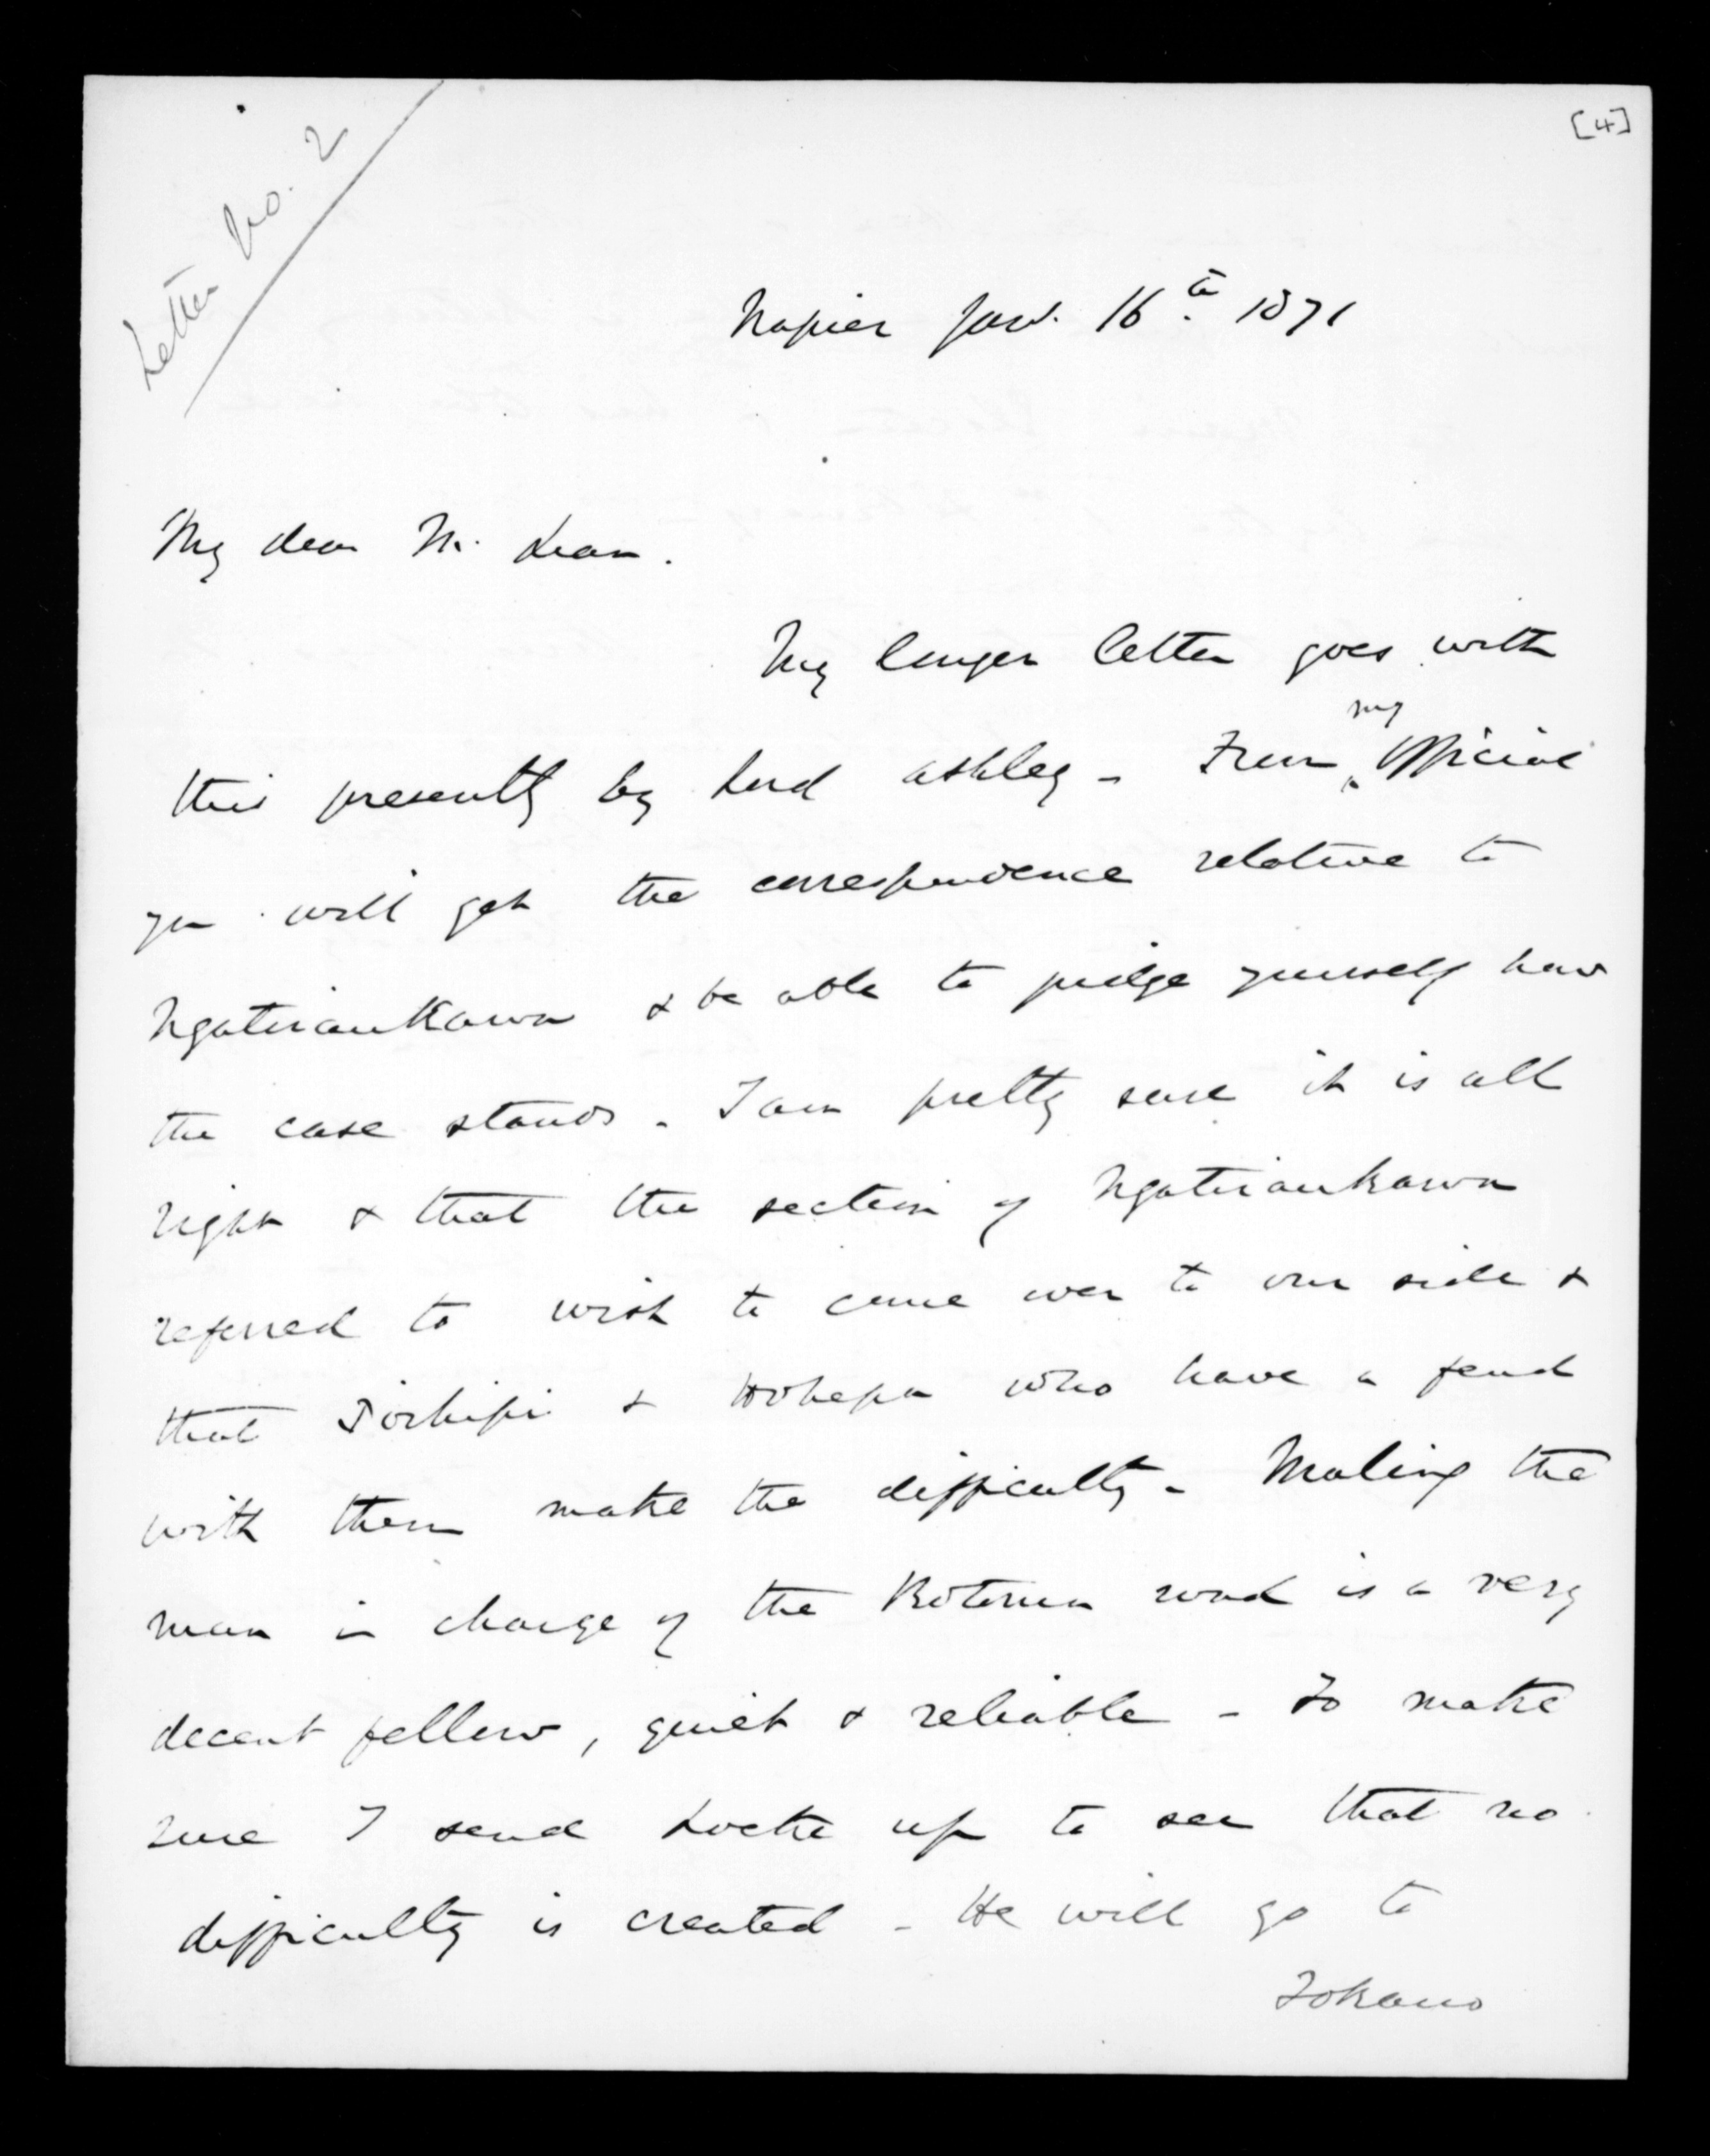 [4]
Letter No. 2
Napier Jan. 16th 1871
My dear McLean.
My longer letter goes with
this presently by Lord Ashley - From my Official
you will get the correspondence relative to
Ngatiraukawa & be able to judge yourself how
the case stands. I am pretty sure it is all
right & that the section of Ngatiraukawa
referred to wish to come over to our side &
that & Hohepa who have a feud
with them make the difficulty - Maling the
man in charge of the Rotorua road is a very
decent fellow, quiet & reliable - To make
sure I send Locke up to see that no
difficulty is created - He will go to
Tokano